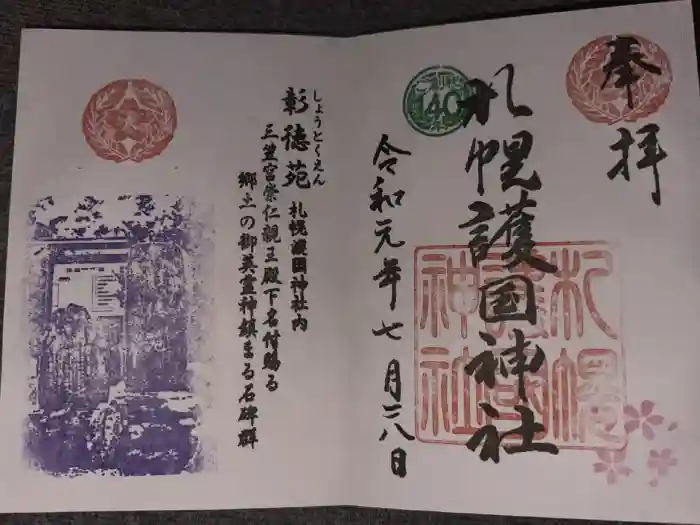 奉拝
札幌護国神社
札幌護国神社
140
令和元年七月二八日
しょうとくえん
彰徳苑 札幌護国神社内
三笠宮崇仁親王殿下名付賜る
郷土の御英霊神鎮まる石碑群